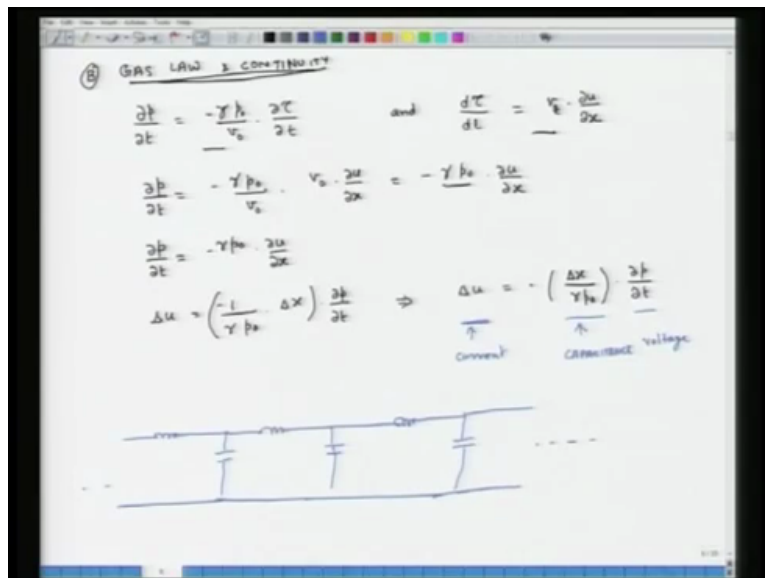 (B) GAS LAW & CONTINUITY
∂p/∂t = -γp₀/V₀ · ∂τ/∂t and dτ/dt = V₀ · ∂u/∂x
∂p/∂t = - γp₀/V₀ · V₀ · ∂u/∂x = - γp₀ · ∂u/∂x
∂p/∂t = -γp₀ · ∂u/∂x
Δu = (-1/γp₀ · Δx) · ∂p/∂t ⇒ Δu = - (Δx/γp₀) · ∂p/∂t
Current CAPACITANCE Voltage